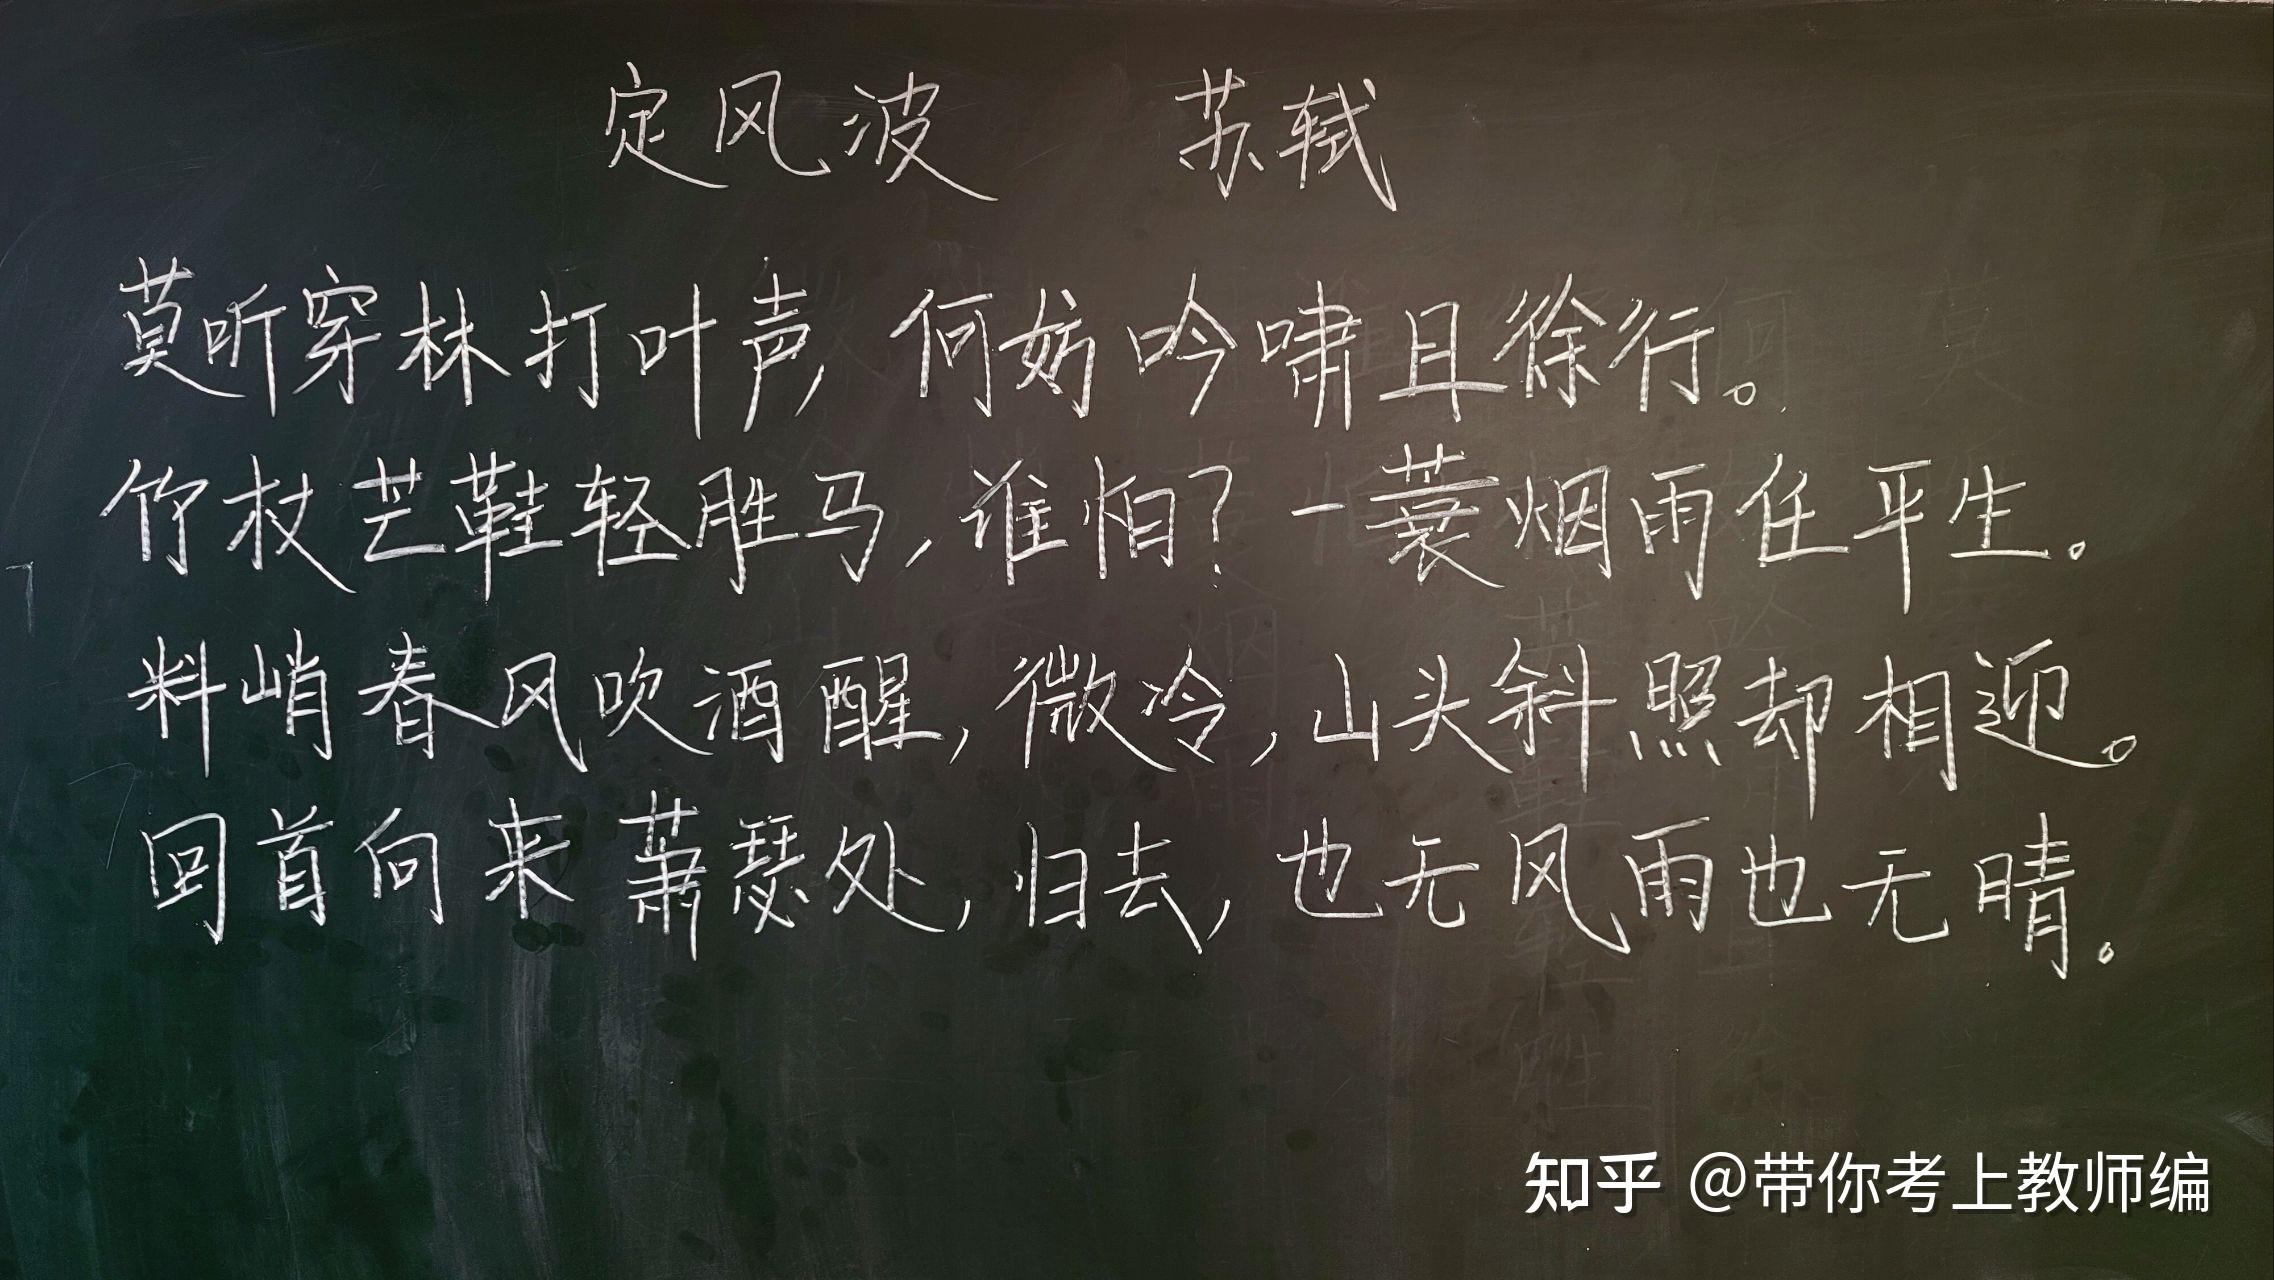 定风波 苏轼
莫听穿林打叶声,何妨吟啸且徐行。
竹杖芒鞋轻胜马,谁怕?一蓑烟雨任平生。
料峭春风吹酒醒,微冷,山头斜照却相迎。
回首向来萧瑟处,归去,也无风雨也无晴。
知乎 @带你考上教师编